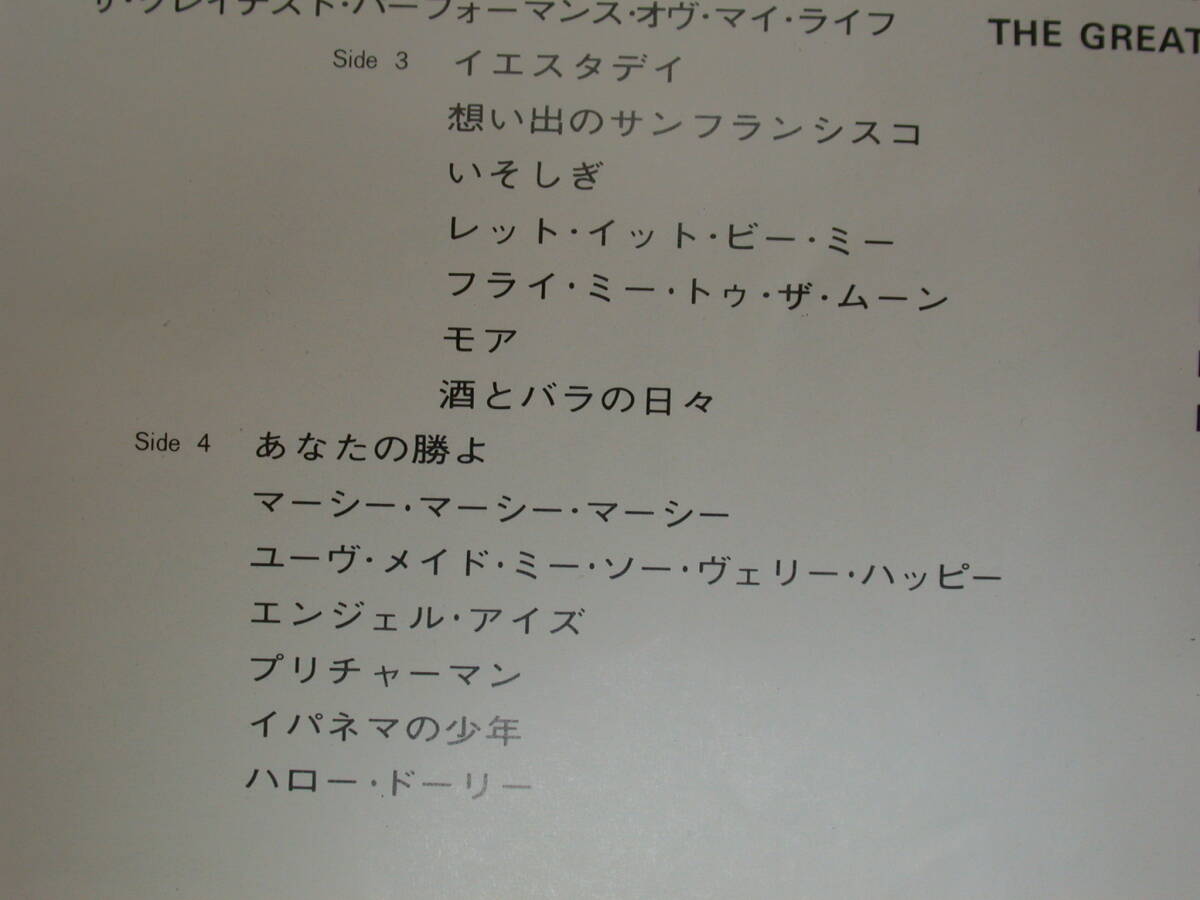 ザ・グレイテスト・パーフォーマンス・オヴ・マイ・ライフ
THE GREAT
Side 3 イエスタデイ
想い出のサンフランシスコ
いそしぎ
レット・イット・ビー・ミー
フライ・ミー・トゥ・ザ・ムーン
モア
酒とバラの日々
Side 4 あなたの勝よ
マーシー・マーシー・マーシー
ユーヴ・メイド・ミー・ソー・ヴェリー・ハッピー
エンジェル・アイズ
プリチャーマン
イパネマの少年
ハロー・ドーリー